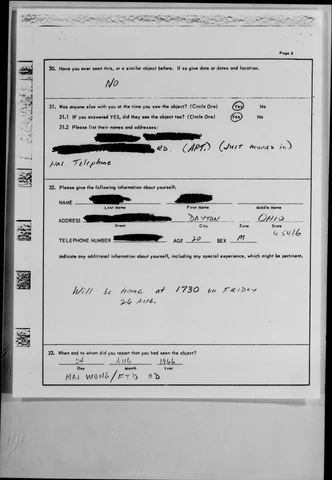 Page 6
30. Have you ever seen this, or a similar object before. If so give date or dates and location.
NO
31. Was anyone else with you at the time you saw the object? (Circle One) Yes No
31.1 IF you answered YES, did they see the object too? (Circle One) Yes No
31.2 Please list their names and addresses:
RD. (APT.) (JUST MOVED IN)
Has Telephone
32. Please give the following information about yourself:
NAME
Last Name First Name Middle Name
ADDRESS DAYTON OHIO
Street City Zone State
45416
TELEPHONE NUMBER AGE 20 SEX M
Indicate any additional information about yourself, including any special experience, which might be pertinent.
Will be home at 1730 on FRIDAY
26 AUG.
33. When and to whom did you report that you had seen the object?
24 AUG 1966
Day Month Year
/FTD OD